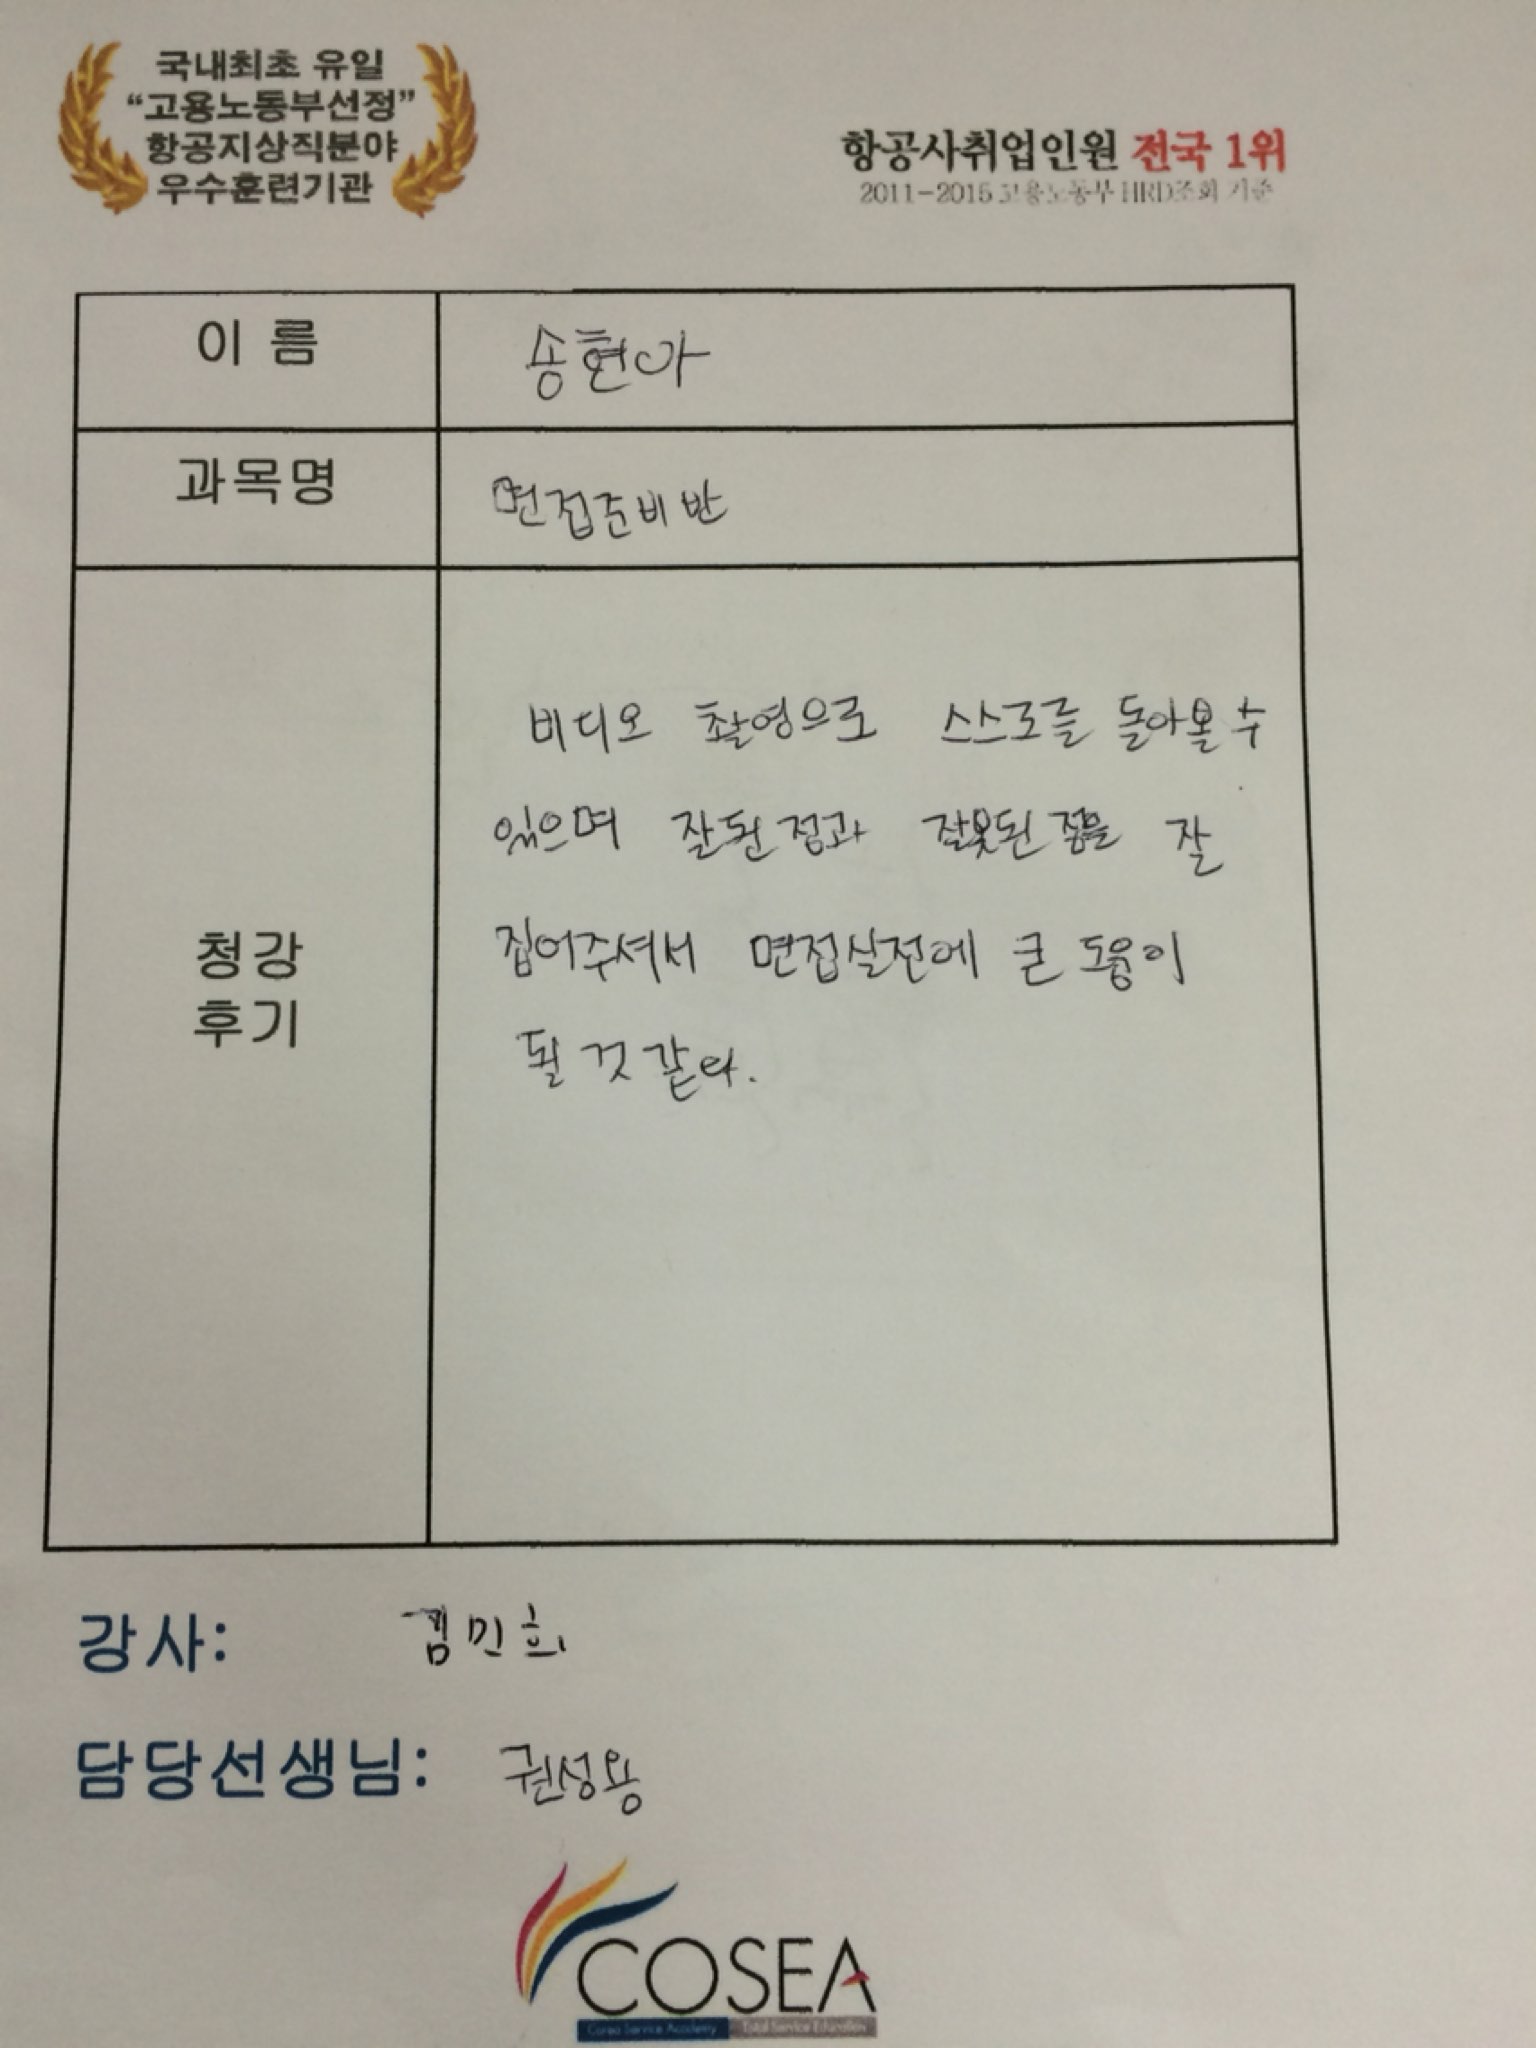 국내최초 유일
“고용노동부선정”
항공지상직분야
우수훈련기관
항공사취업인원 전국 1위
2011-2015 고용노동부 HRD조회 기준
이 름
송현아
과목명
면접준비반
청강
후기
비디오 촬영으로 스스로를 돌아볼 수
있으며 잘된 점과 잘못된 점을 잘
집어주셔서 면접실전에 큰 도움이
될 것 같다.
강사: 김민희
담당선생님: 권성용
COSEA
Corea Service Academy Total Service Education